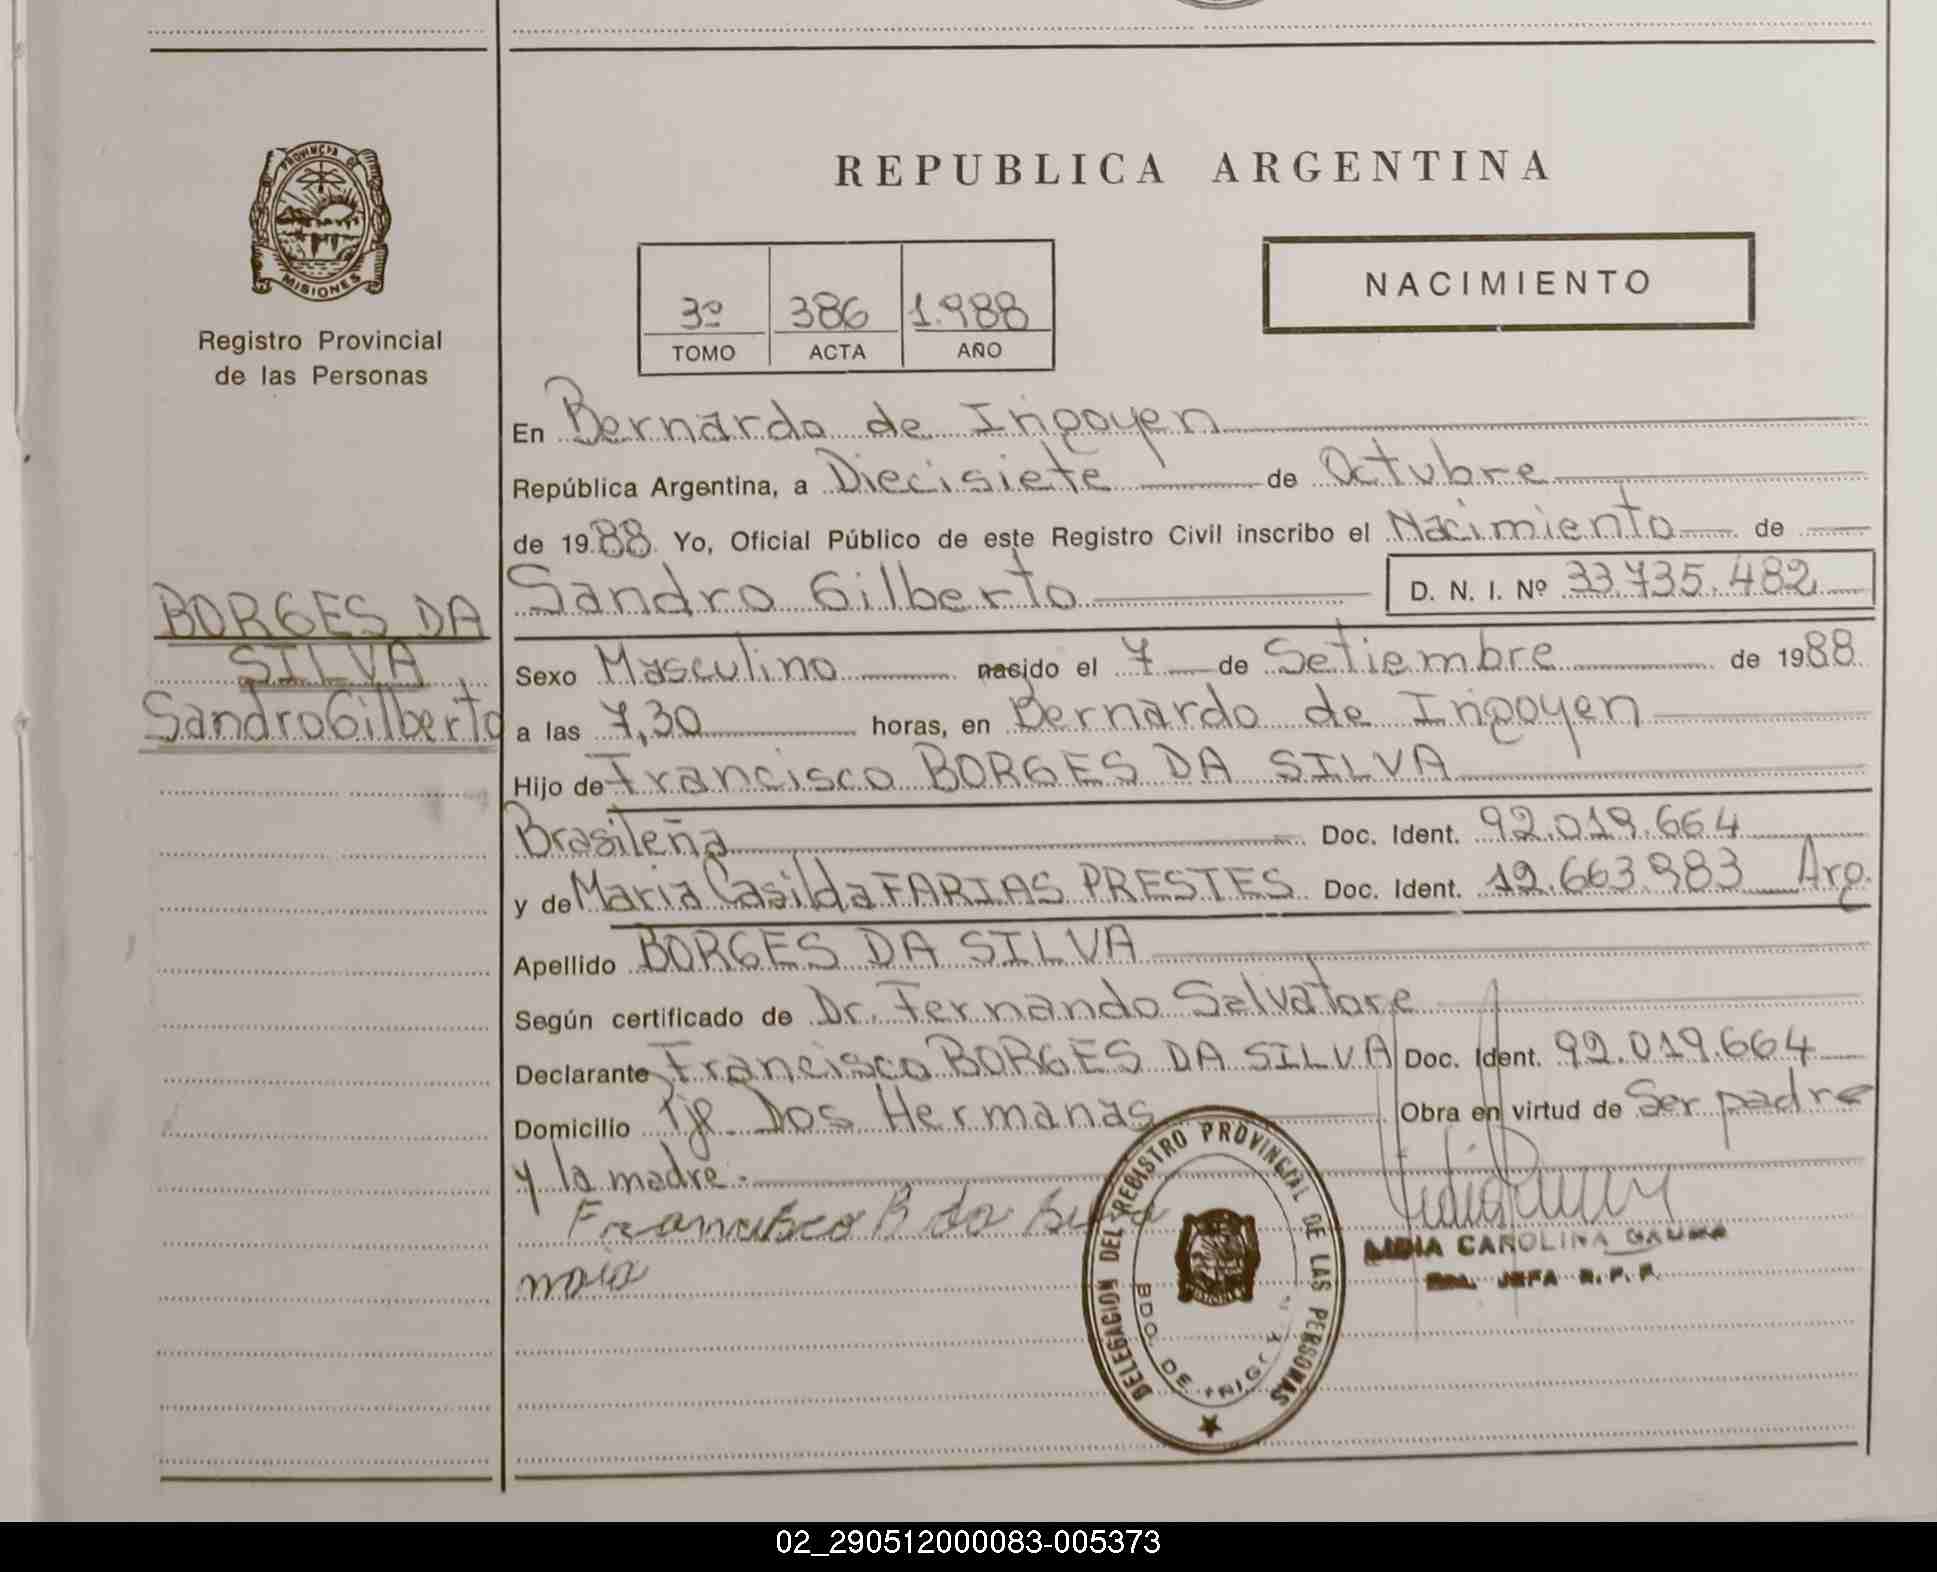 PROVINCIA DE
MISIONES
Registro Provincial
de las Personas
BORGES DA
SILVA
Sandro Gilberto
REPUBLICA ARGENTINA
3º 386 1.988
TOMO ACTA AÑO
NACIMIENTO
En Bernardo de Irigoyen
República Argentina, a Diecisiete de Octubre
de 1988 Yo, Oficial Público de este Registro Civil inscribo el Nacimiento de
Sandro Gilberto D. N. I. Nº 33.735.482
Sexo Masculino nacido el 7 de Setiembre de 1988
a las 7,30 horas, en Bernardo de Irigoyen
Hijo de Francisco BORGES DA SILVA
Brasileña Doc. Ident. 92.019.664
y de Maria Casilda FARIAS PRESTES Doc. Ident. 12.663.983 Arg.
Apellido BORGES DA SILVA
Según certificado de Dr. Fernando Salvatore
Declarante Francisco BORGES DA SILVA Doc. Ident. 92.019.664
Domicilio Pje. Dos Hermanas Obra en virtud de Ser padre
y la madre.-
Francisco B da Silva
LIDIA CAROLINA
JEFA R.P.P.
DELEGACION DEL REGISTRO PROVINCIAL DE LAS PERSONAS
BDO. DE
02_290512000083-005373